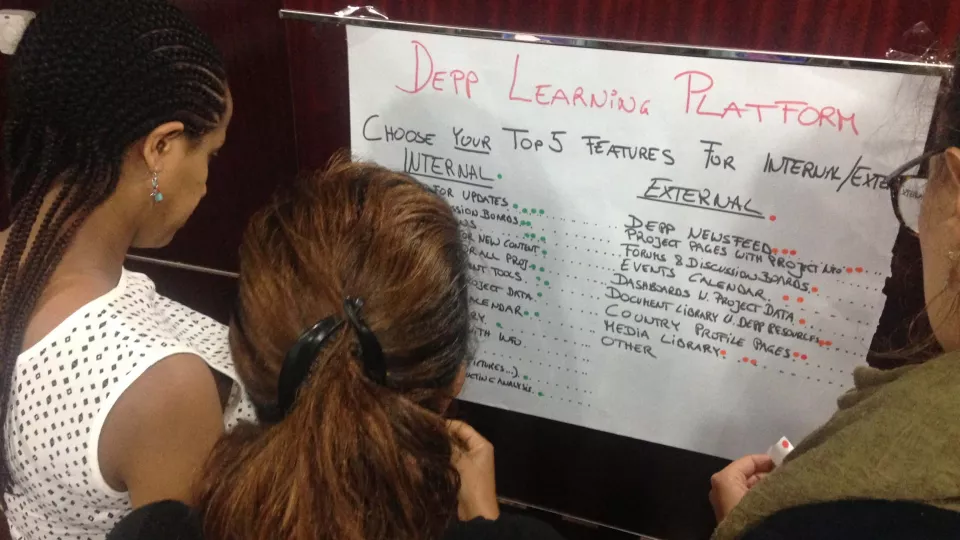 DEPP LEARNING PLATFORM
CHOOSE YOUR TOP 5 FEATURES FOR INTERNAL/EXTE
INTERNAL
FOR UPDATES
BOARDS
FOR NEW CONTENT
ALL PROJ.
TOOLS
DATA
WITH INFO
ANALYSIS
EXTERNAL
DEPP NEWSFEED
PROJECT PAGES WITH PROJECT INFO
FORUMS & DISCUSSION BOARDS
EVENTS CALENDAR
DASHBOARDS W. PROJECT DATA
DOCUMENT LIBRARY W. DEPP RESOURCES
COUNTRY PROFILE PAGES
MEDIA LIBRARY
OTHER